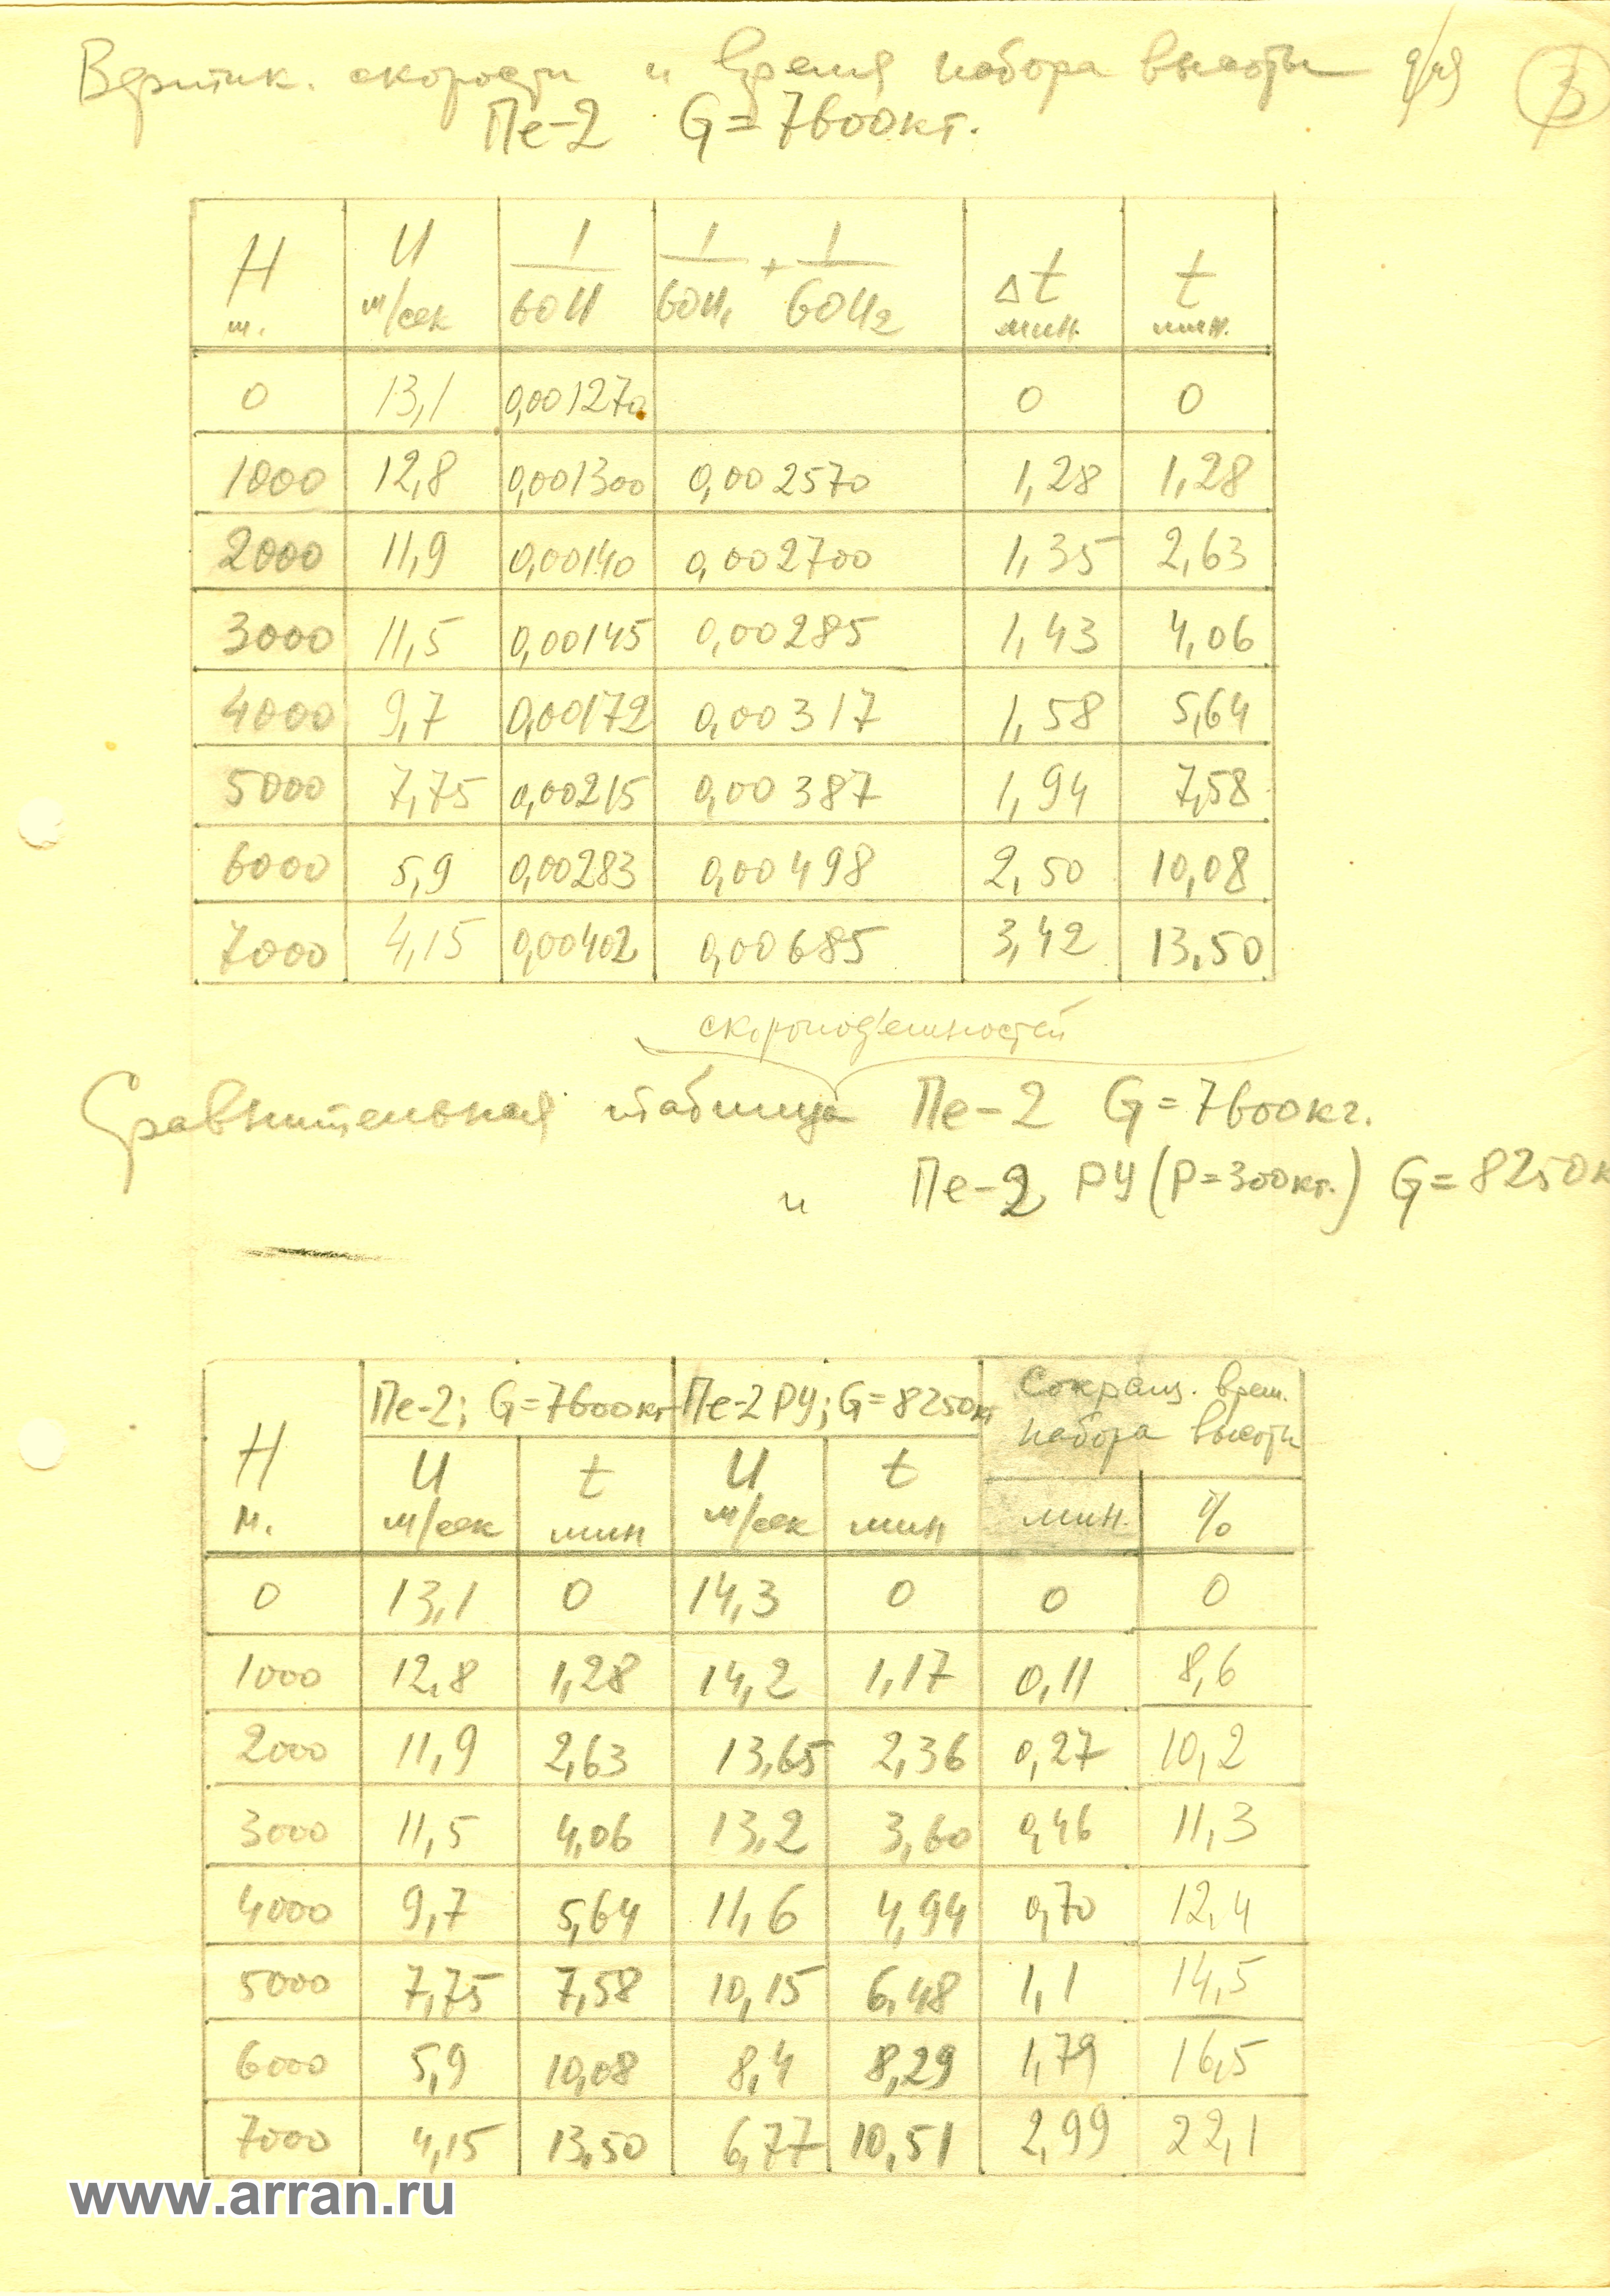 Вертик. скорости и время набора высоты для
3
Пе-2 G=7600кг.
H м. | U м/сек | 1/60U | 1/60U₁ + 1/60U₂ | Δt мин. | t мин.
0 | 13,1 | 0,001270 | | 0 | 0
1000 | 12,8 | 0,001300 | 0,002570 | 1,28 | 1,28
2000 | 11,9 | 0,00140 | 0,002700 | 1,35 | 2,63
3000 | 11,5 | 0,00145 | 0,00285 | 1,43 | 4,06
4000 | 9,7 | 0,00172 | 0,00317 | 1,58 | 5,64
5000 | 7,75 | 0,00215 | 0,00387 | 1,94 | 7,58
6000 | 5,9 | 0,00283 | 0,00498 | 2,50 | 10,08
7000 | 4,15 | 0,00402 | 0,00685 | 3,42 | 13,50
скороподъемностей
Сравнительная таблица Пе-2 G=7600кг.
и Пе-2 РУ (P=300кг.) G=8250к
H м. | Пе-2; G=7600кг | Пе-2РУ; G=8250кг | Сокращ. врем. набора высоты
U м/сек | t мин | U м/сек | t мин | мин. | %
0 | 13,1 | 0 | 14,3 | 0 | 0 | 0
1000 | 12,8 | 1,28 | 14,2 | 1,17 | 0,11 | 8,6
2000 | 11,9 | 2,63 | 13,65 | 2,36 | 0,27 | 10,2
3000 | 11,5 | 4,06 | 13,2 | 3,60 | 0,46 | 11,3
4000 | 9,7 | 5,64 | 11,6 | 4,94 | 0,70 | 12,4
5000 | 7,75 | 7,58 | 10,15 | 6,48 | 1,1 | 14,5
6000 | 5,9 | 10,08 | 8,4 | 8,29 | 1,79 | 16,5
7000 | 4,15 | 13,50 | 6,77 | 10,51 | 2,99 | 22,1
www.arran.ru